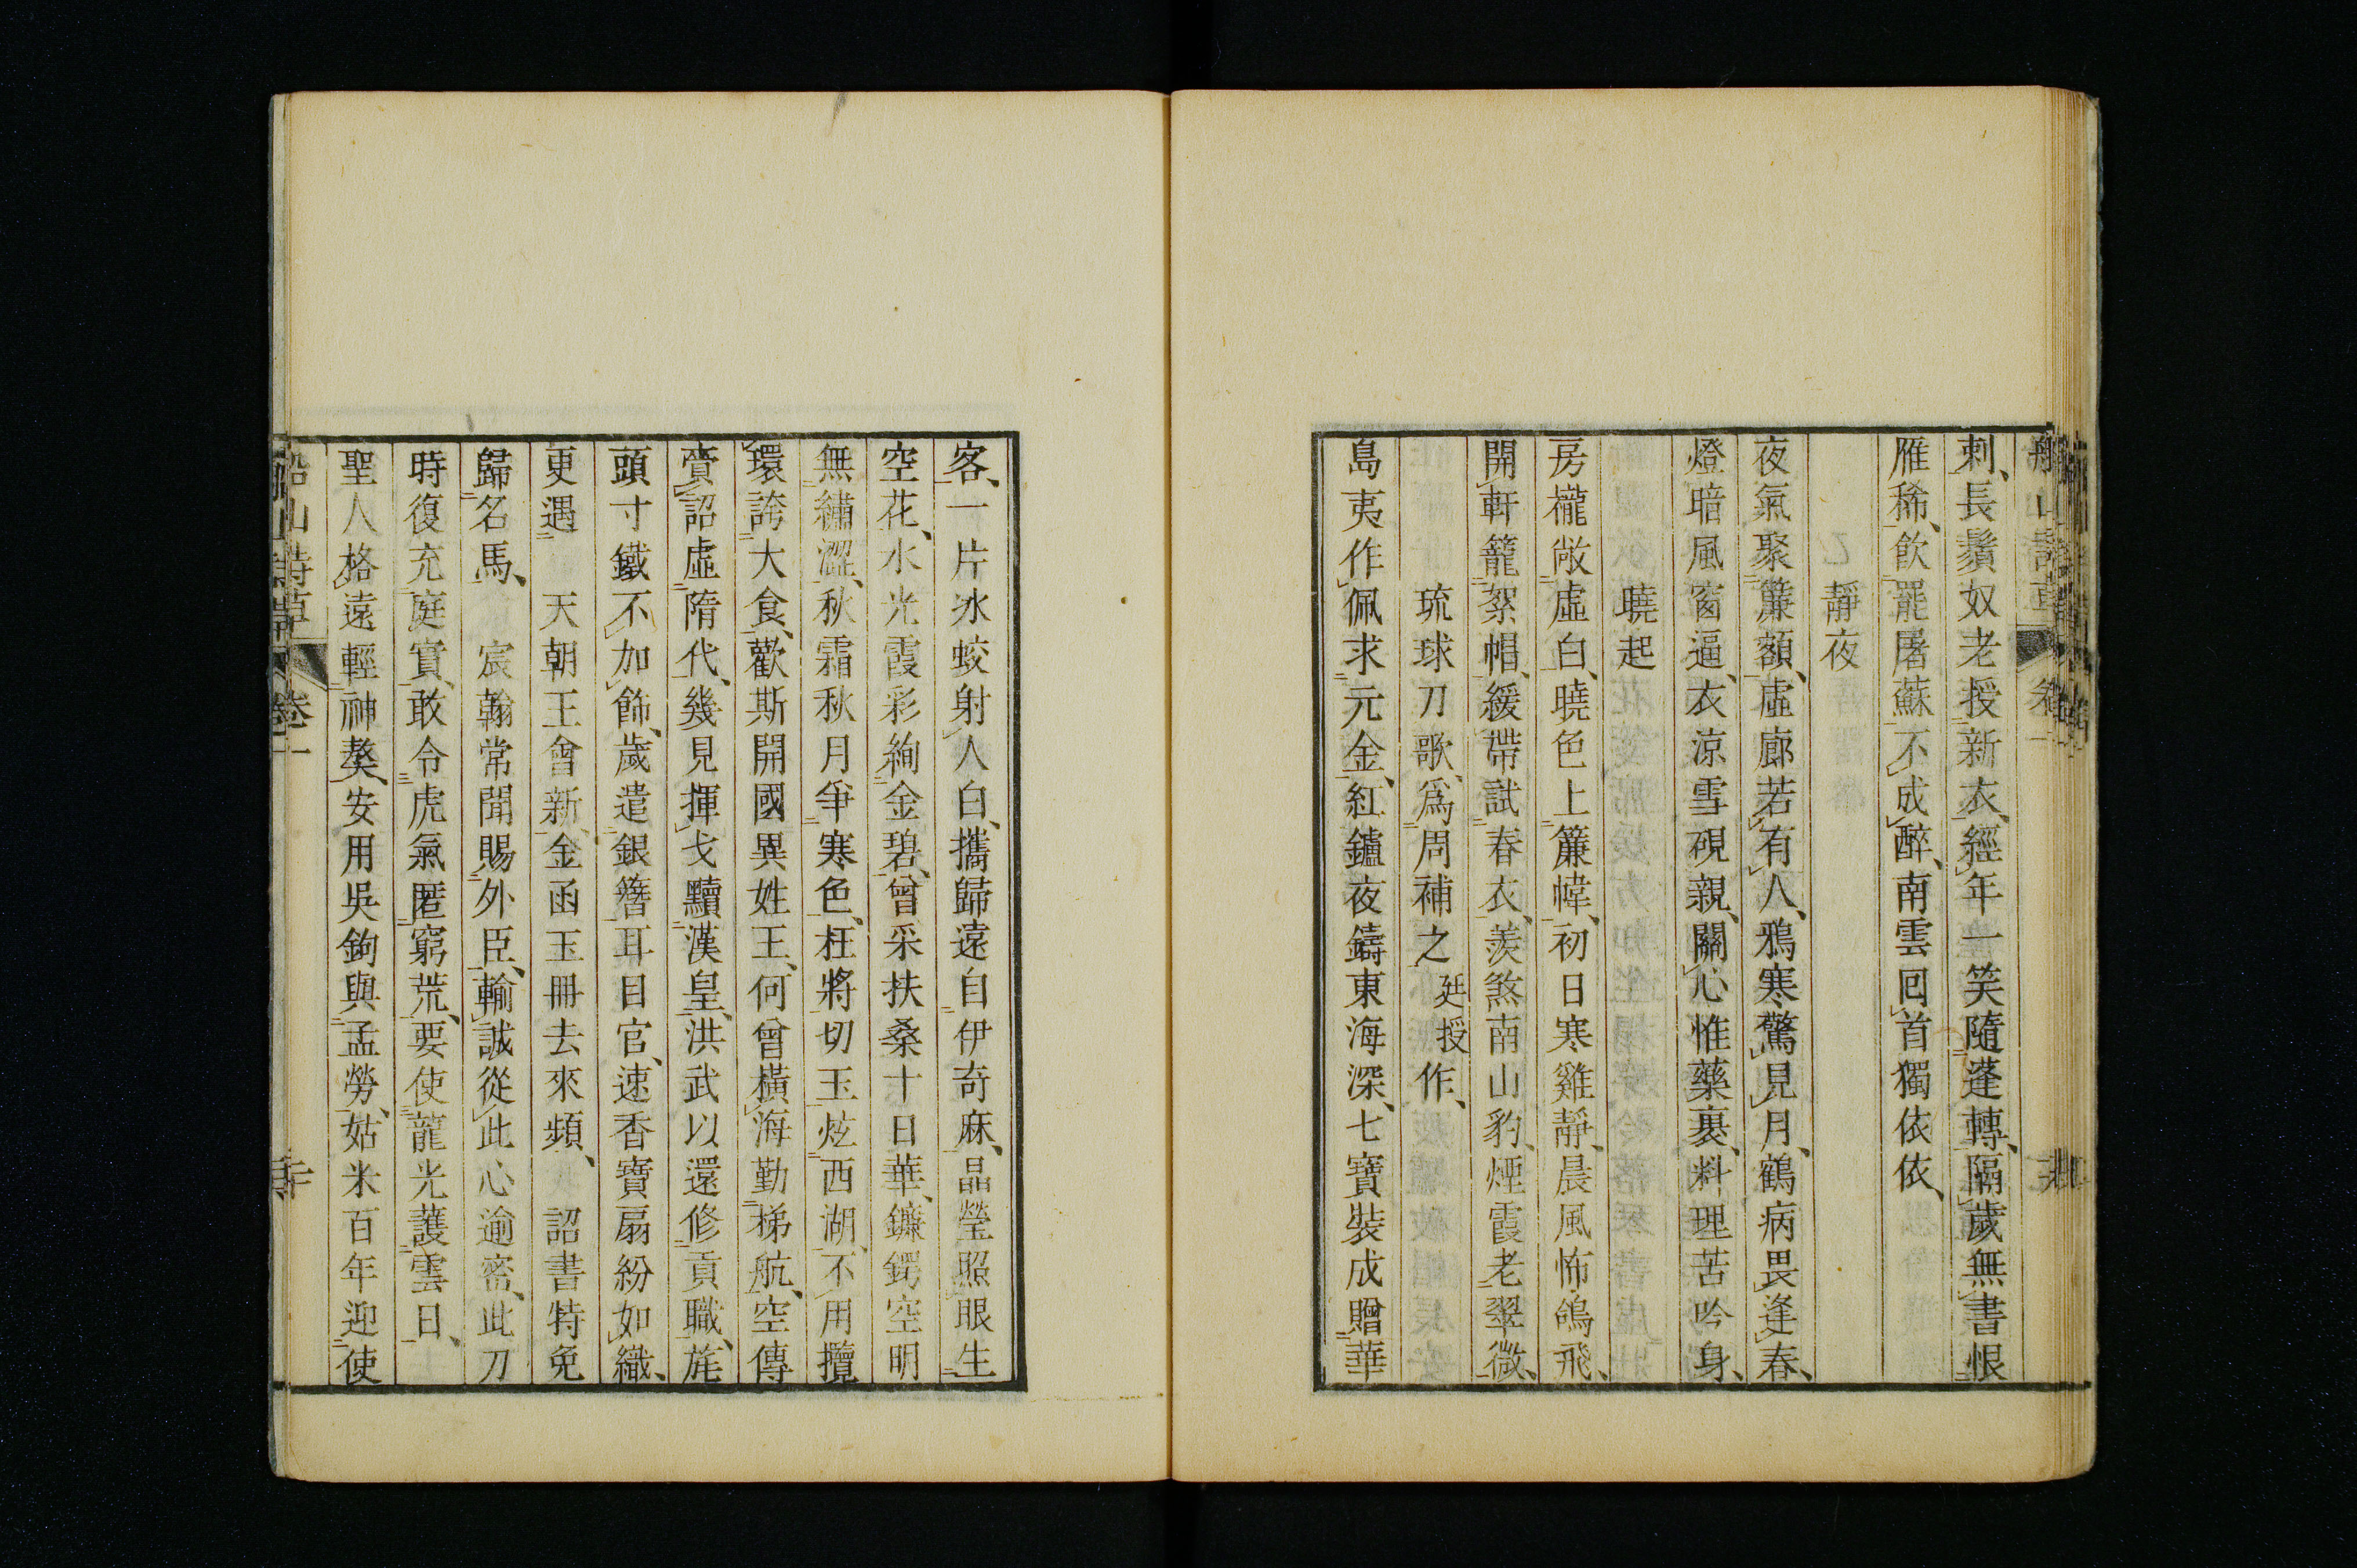 船山詩草 卷一
刺、長鬚奴老授新衣、經年一笑隨蓬轉、隔歲無書恨
雁稀、飲罷屠蘇不成醉、南雲回首獨依依、
靜夜
夜氣聚簾額、虛廊若有人、鴉寒驚見月、鶴病畏逢春、
燈暗風窗逼、衣涼雪硯親、關心惟藥裹、料理苦吟身、
曉起
房櫳敞虛白、曉色上簾幃、初日寒雞靜、晨風怖鴿飛、
開軒籠絮帽、緩帶試春衣、羨煞南山豹、煙霞老翠微、
琉球刀歌、爲周補之廷授作、
島夷作佩求元金、紅鑪夜鑄東海深、七寶裝成贈華
客、一片冰蛟射人白、攜歸遠自伊奇麻、晶瑩照眼生
空花、水光霞彩絢金碧、曾采扶桑十日華、鐮鍔空明
無繡澀、秋霜秋月爭寒色、枉將切玉炫西湖、不用攬
環誇大食、歡斯開國異姓王、何曾橫海勤梯航、空傳
賚詔虛隋代、幾見揮戈黷漢皇、洪武以還修貢職、旄
頭寸鐵不加飾、歲遣銀簪耳目官、速香寶扇紛如織、
更遇 天朝王會新、金函玉冊去來頻、 詔書特免
歸名馬、 宸翰常聞賜外臣、輸誠從此心逾密、此刀
時復充庭實、敢令虎氣匿窮荒、要使龍光護雲日、
聖人格遠輕神獒、安用吳鉤與孟勞、姑米百年迎使
船山詩草 卷一 二十